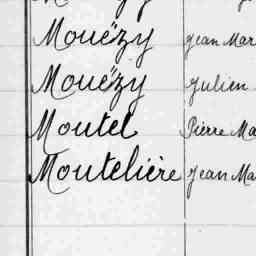 Mouëzy Jean Mar
Mouëzy Julien
Moutel Pierre Ma
Moutelière Jean Ma